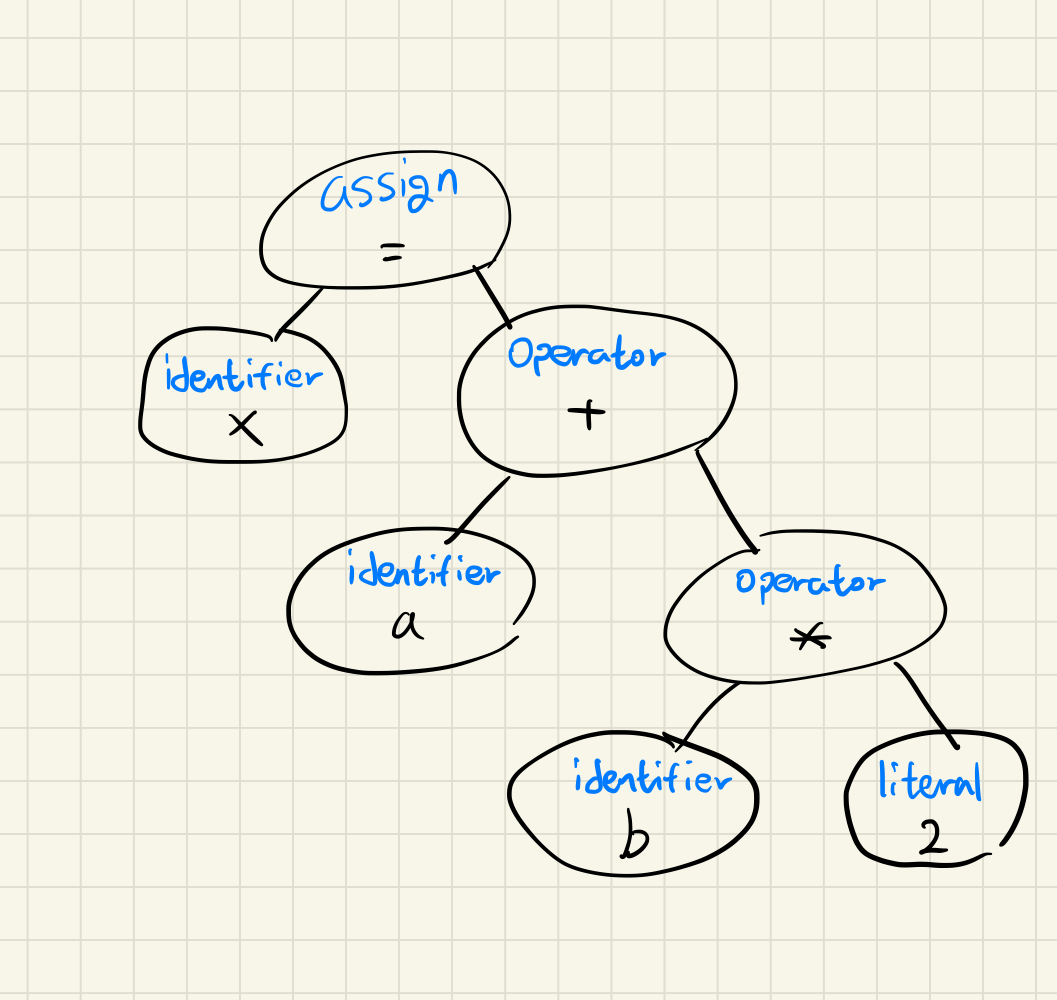 assign
=
identifier
x
Operator
+
identifier
a
operator
*
identifier
b
literal
2